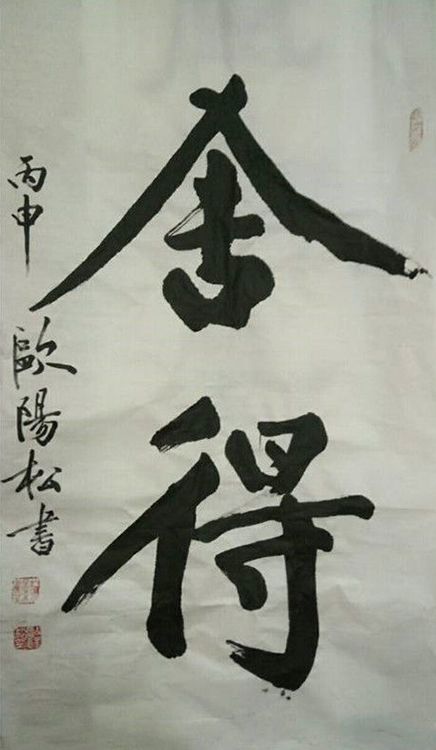 舍得
丙申 歐陽松書